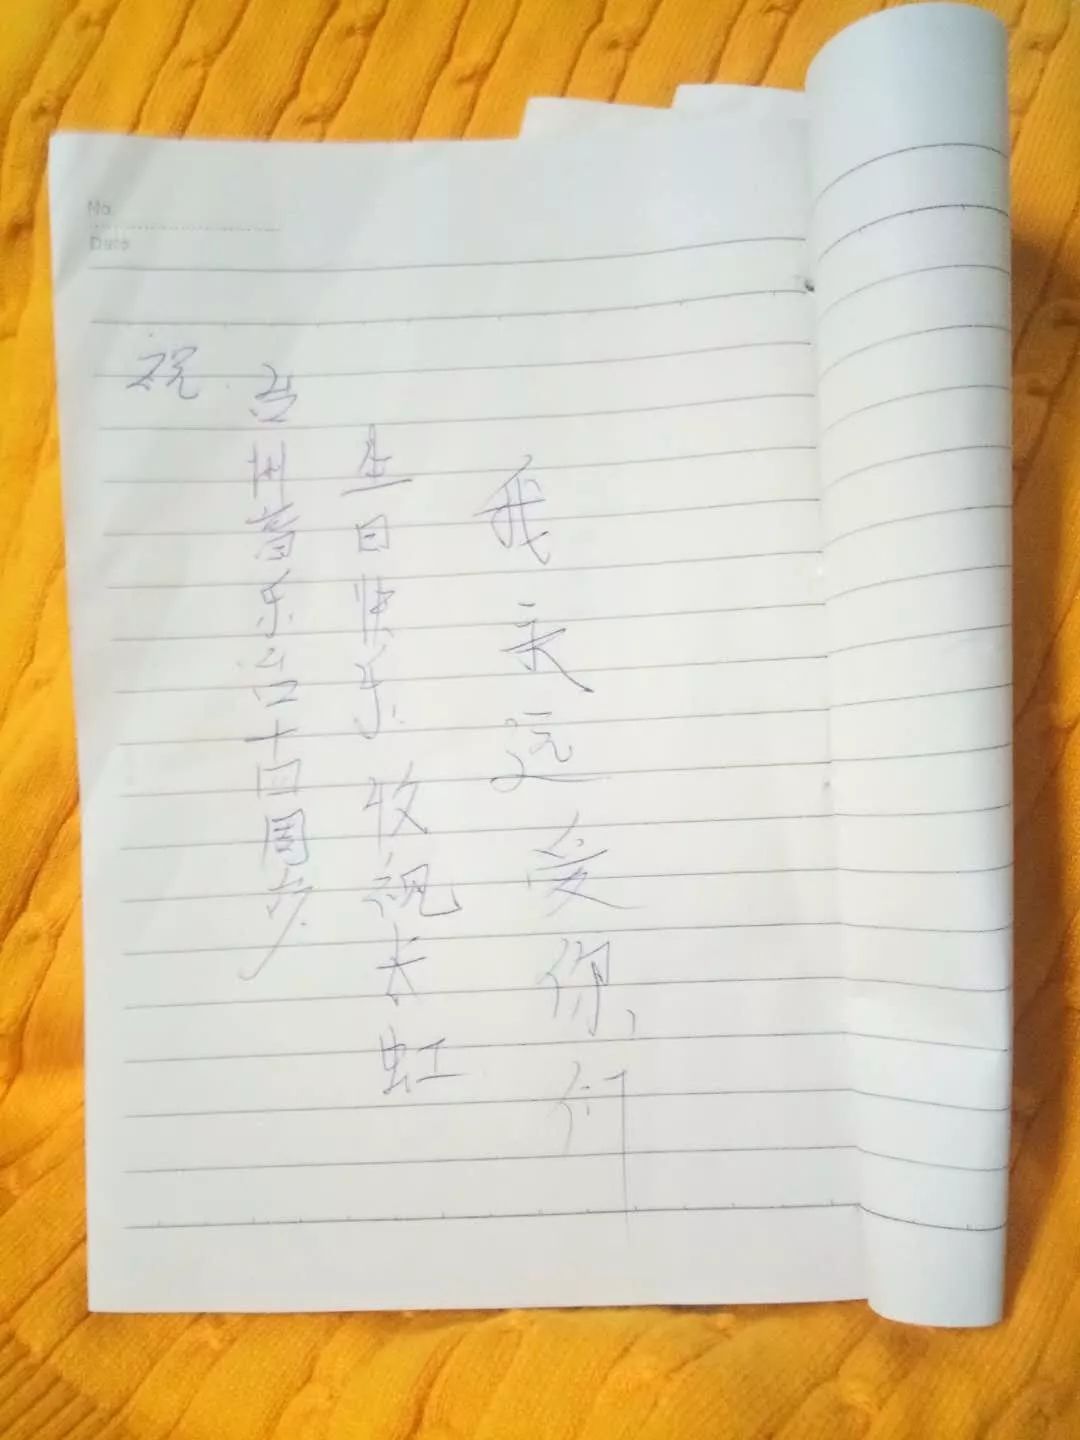 No.
Date
祝
台州音乐台十四周岁
生日快乐 收视长虹
我永远爱你们